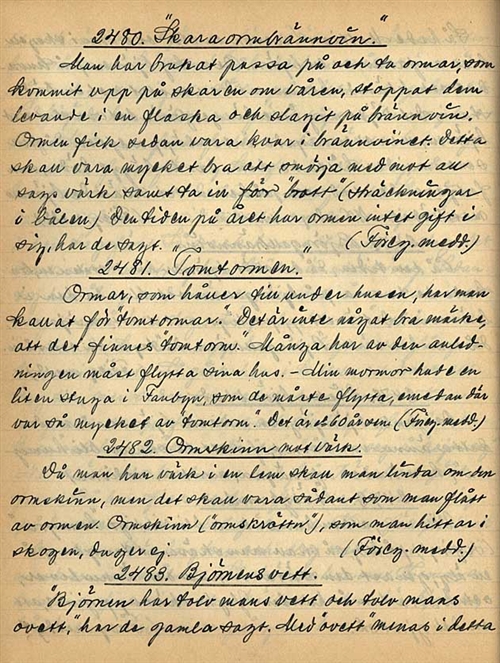 2480. "Skaraormbrännvin."
Man har brukat passa på och ta ormar, som
kommit upp på skaren om våren, stoppat dem
levande i en flaska och slagit på brännvin.
Ormen fick sedan vara kvar i brännvinet. Detta
skall vara mycket bra att smörja med mot all
sags värk samt ta in för "brott" (sträckningar
i bålen) Den tiden på året har ormen intet gift i
sig, har de sagt. (Föreg. medd.)
2481. "Tomtormen."
Ormar, som håller till under husen, har man
kallat för "tomtormar." Det är inte något bra märke,
att det finnes tomtorm. Många har av den anled-
ningen måst flytta sina hus. – Min mormor hade en
liten stuga i Faubyn, som de måste flytta, emedan där
var så mycket av "tomtorm." Det är ett 60 år sen. (Föreg. medd.)
2482. Ormskinn mot värk.
Då man har värk i en lem skall man linda om den
ormskinn, men det skall vara sådant som man flått
av ormen. Ormskinn ("ormskröttn"), som man hittar i
skogen, duger ej. (Föreg. medd.)
2483. Björnens vett.
"Björnen har tolv mans vett och tolv mans
ovett," har de gamla sagt. Med "ovett" menas i detta